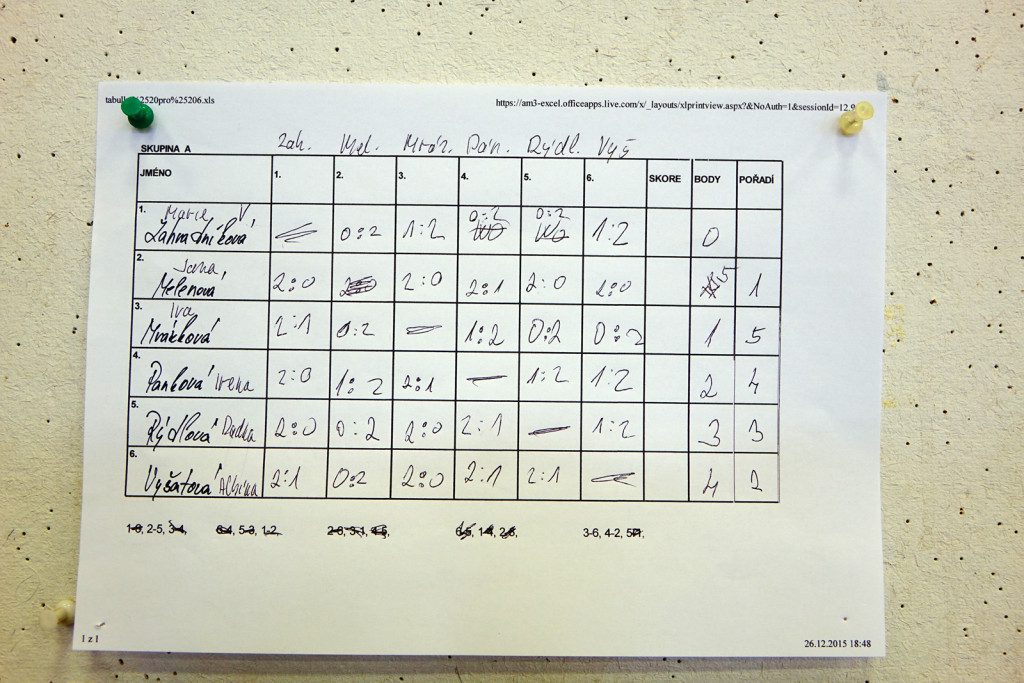 tabulk 2520pro%25206.xls https://am3-excel.officeapps.live.com/x/_layouts/xlprintview.aspx?&NoAuth=1&sessionId=12.9
SKUPINA A Zah. Mel. Mráz. Pán. Rýdl. Vyš
JMÉNO 1. 2. 3. 4. 5. 6. SKORE BODY POŘADÍ
1. Marie V,
Zahradníková 0:2 1:2 0:2 WO 0:2 WO 1:2 0
2. Jana,
Melenova 2:0 2:0 2:1 2:0 2:0 5 1
3. Iva
Mrázková 2:1 0:2 1:2 0:2 0:2 1 5
4.
Panková Irena 2:0 1:2 2:1 1:2 1:2 2 4
5.
Rýdlová Radka 2:0 0:2 2:0 2:1 1:2 3 3
6.
Vyšatová Albína 2:1 0:2 2:0 2:1 2:1 4 2
1-6, 2-5, 3-4, 6-4, 5-3, 1-2, 2-6, 3-1, 4-5, 6-5, 1-4, 2-3, 3-6, 4-2, 5-1,
1 z 1 26.12.2015 18:48